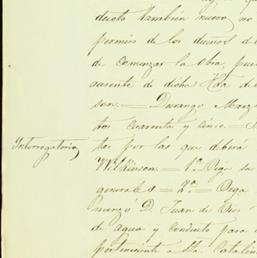 ducto también nuevo, no
permiso de los dueños de
de comenzar la obra, pues
ausente de dicha Hda de
son = Durango Marzo
tos cuarenta y cinco =
Interrogatorio
tas por las que deberá
Wilkinson = 1ª Diga su
generales = 2ª = Diga
menzó D. Juan de Dios
de agua y conducto para
perteneciente a Sta Catalina